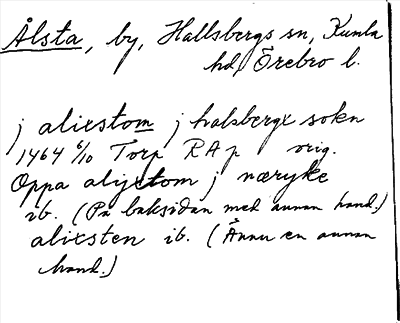 Ålsta, by, Hallsbergs sn, Kumla
hd, Örebro l.
j alixstom j halsbergx soken
1464 6/10 Torp RA p orig.
Oppa alyxtom j næryke
ib. (På baksidan med annan hand.)
alixsten ib. (Ännu en annan
hand.)